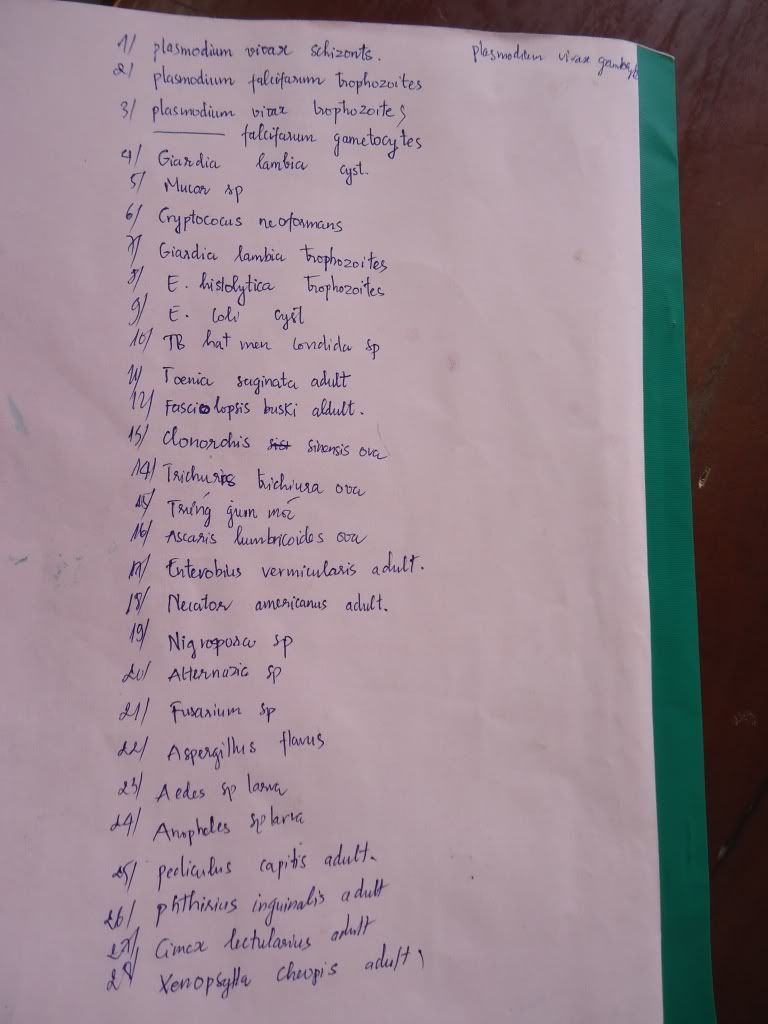 1/ plasmodium vivax schizonts. plasmodium vivax
2/ plasmodium falcifarum trophozoites
3/ plasmodium vivax trophozoites
falcifarum gametocytes
4/ Giardia lambia cyst.
5/ Mucor sp
6/ Cryptococus neoformans
7/ Giardia lambia trophozoites
8/ E. histolytica trophozoites
9/ E. coli cyst
10/ TB hat men condida sp
11/ Toenia saginata adult
12/ Fasciolopsis buski aldult.
13/ Clonorchis sinensis ova
14/ Trichuris trichiura ova
15/ Trứng giun móc
16/ Ascaris lumbricoides ova
17/ Enterobius vermicularis adult.
18/ Necator americanus adult.
19/ Nigrospora sp
20/ Alternaria sp
21/ Fusarium sp
22/ Aspergillus flavus
23/ Aedes sp larva
24/ Anopheles sp larva
25/ pediculus capitis adult.
26/ phthirius inguinalis adult
27/ Cimex lectularius adult
28/ Xenopsylla cheopis adult